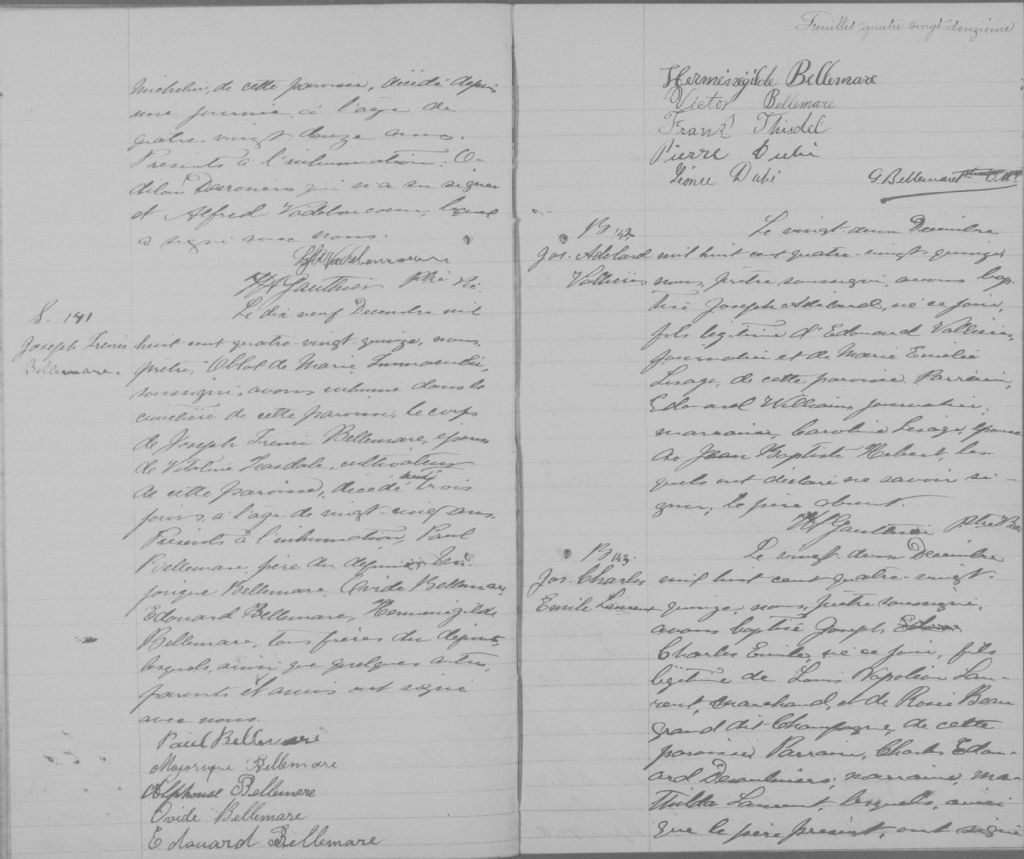 de cette paroisse, décédé depuis
une journée, à l'age de
quatre-vingt douze ans.
Présents à l'inhumation: O-
dilon qui n'a su signer
et Alfred lequel
a signé avec nous.
Gauthier Ptre
S. 141
Joseph Irénée
Bellemare.
Le dix neuf Decembre mil
huit cent quatre-vingt-quinze, nous,
prêtre, Oblat de Marie Immaculée,
soussigné, avons inhumé dans le
cimetière de cette paroisse, le corps
de Joseph Irénée Bellemare, époux
de cultivateur
de cette paroisse, décédé trois
jours, à l'age de vingt-cinq ans.
Présents à l'inhumation, Paul
Bellemare, père du défunt
Bellemare, Ovide Bellemare,
Edouard Bellemare, Herménégilde
Bellemare, tous frères du défunt,
lesquels, ainsi que quelques autres
parents et amis ont signé
avec nous.
Paul Bellemare
Majorique Bellemare
Alphonse Bellemare
Ovide Bellemare
Edouard Bellemare
Feuillet quatre vingt-douzième
Herménégilde Bellemare
Victor Bellemare
Frank Thisdel
Pierre Dubé
Léonce Dubé
G. Bellemare Ptre O.M.I.
B 142
Jos. Adélard
Vallières
Le vingt-deux Decembre
mil huit cent quatre-vingt-quinze
nous, prêtre soussigné, avons bap-
tisé Joseph Adélard, né ce jour,
fils légitime d'Edouard Vallières,
journalier et de Marie Emélie
Lesage, de cette paroisse. Parrain,
Edouard William, journalier,
marraine, Caroline Lesage, épouse
de Jean Baptiste Hebert, les-
quels ont déclaré ne savoir si-
gner, le père absent.
Gauthier Ptre
B 143
Jos. Charles
Emile Laurent
Le vingt-deux Decembre
mil huit cent quatre-vingt-
quinze, nous, prêtre soussigné,
avons baptisé Joseph
Charles Emile, né ce jour, fils
légitime de Louis Napoléon Lau-
rent, marchand, et de Rosie Beau
grand dit Champagne, de cette
paroisse. Parrain, Charles Edou-
ard Desaulniers; marraine, Ma-
thilda Laurent, lesquels, ainsi
que le père présent, ont signé